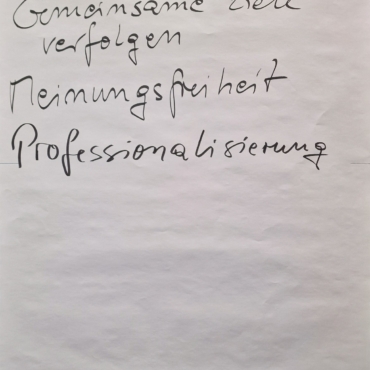 Gemeinsame Ziele
verfolgen
Meinungsfreiheit
Professionalisierung